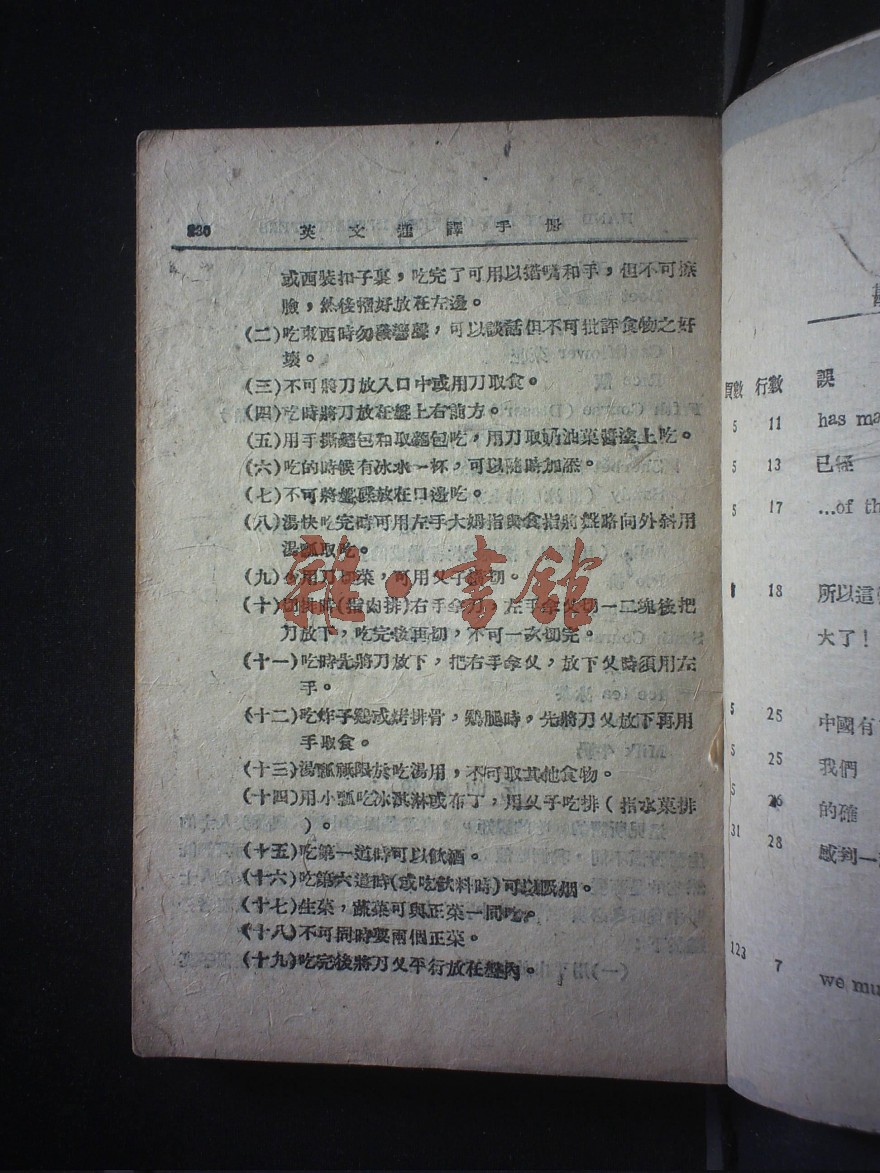 230 英文通譯手册
或西裝扣子裏，吃完了可用以揩嘴和手，但不可揩
臉，然後摺好放在左邊。
(二)吃東西時勿發響聲，可以談話但不可批評食物之好
壞。
(三)不可將刀放入口中或用刀取食。
(四)吃時將刀放在盤上右前方。
(五)用手撕麵包和取麵包吃，用刀取奶油菓醬塗上吃。
(六)吃的時候有冰水一杯，可以隨時加添。
(七)不可將盤碟放在口邊吃。
(八)湯快吃完時可用左手大姆指與食指將盤略向外斜用
湯瓢取吃。
(九)少用刀切菜，可用父子切。
(十)切排時(指肉排)右手拿刀，左手拿父切一二塊後把
刀放下，吃完後再切，不可一次切完。
(十一)吃時先將刀放下，把右手拿父，放下父時須用左
手。
(十二)吃炸子鷄或烤排骨，鷄腿時，先將刀父放下再用
手取食。
(十三)湯瓢祇限於吃湯用，不可取其他食物。
(十四)用小瓢吃冰淇淋或布丁，用父子吃排(指水菓排
)。
(十五)吃第一道時可以飲酒。
(十六)吃第六道時(或吃飲料時)可以吸烟。
(十七)生菜，蔬菜可與正菜一同吃。
(十八)不可同時要兩個正菜。
(十九)吃完後將刀父平行放在盤內。
雜·書館
頁數 行數 誤
5 11 has ma
5 13 已徑
5 17 ...of th
18 所以這
大了！
5 25 中國有
5 25 我們
5 26 的確
31 28 感到一
123 7 we mu